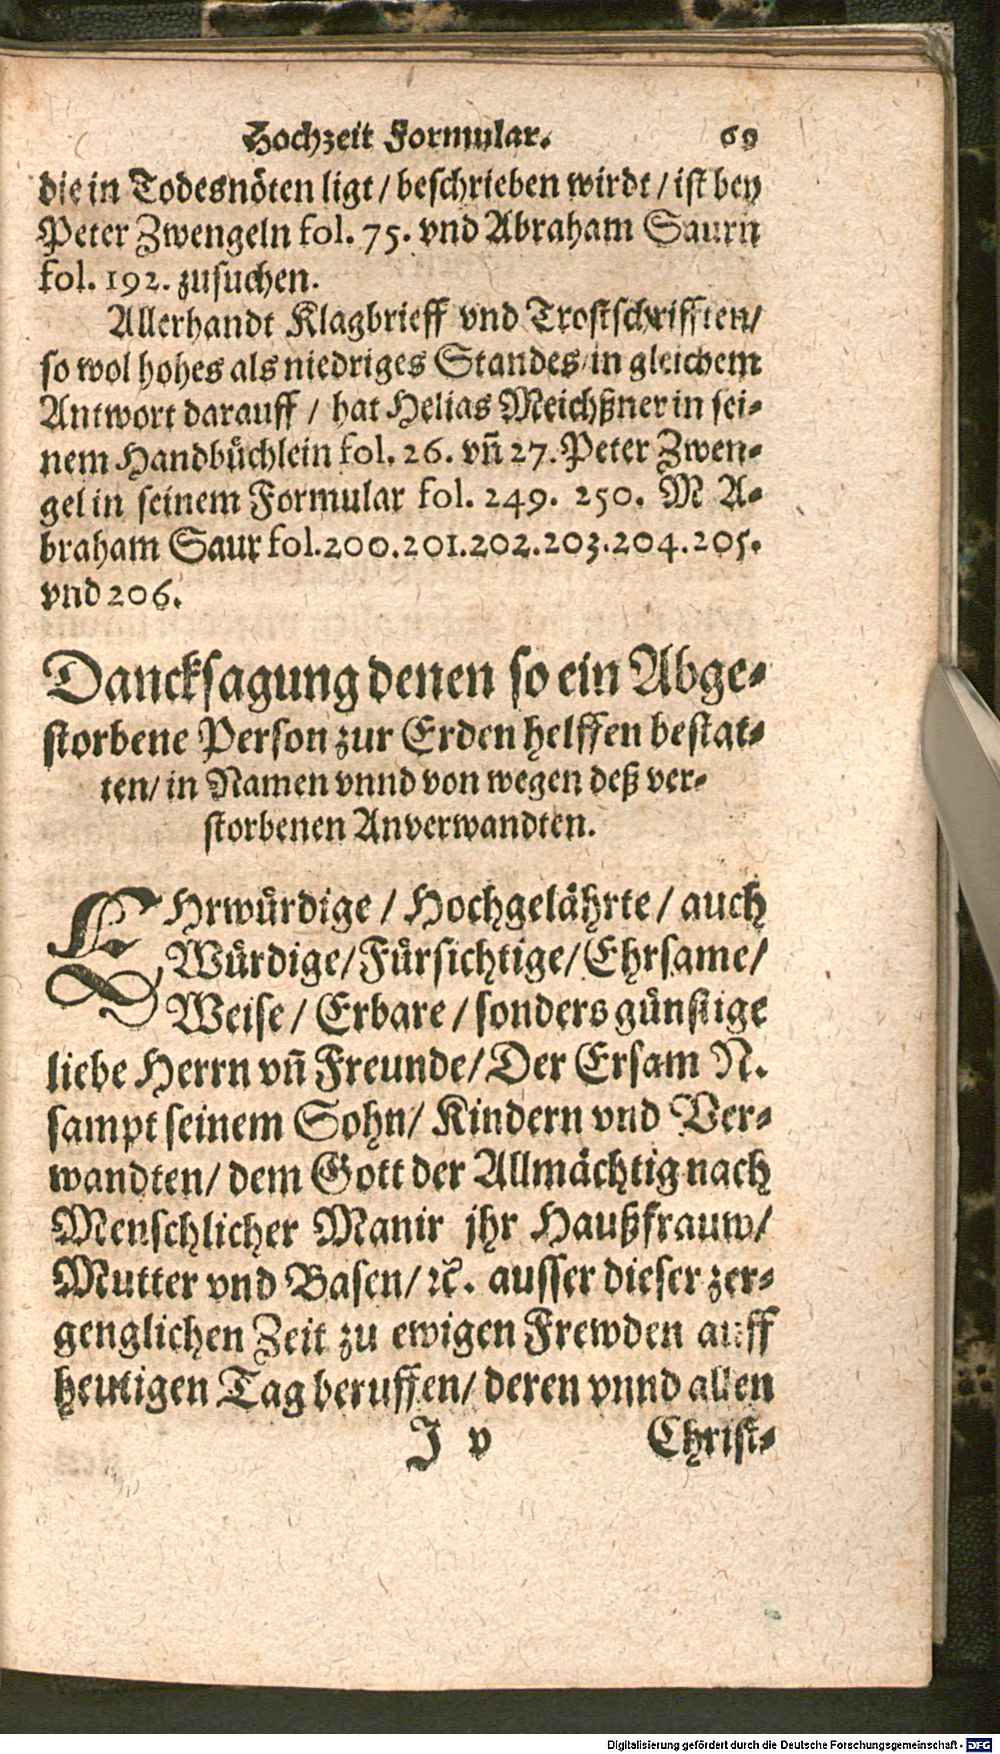 Hochzeit Formular. 69
die in Todesnöten ligt / beschrieben wirdt / ist bey
Peter Zwengeln fol. 75. vnd Abraham Saurn
fol. 192. zusuchen.
Allerhandt Klagbrieff vnd Trostschrifften/
so wol hohes als niedriges Standes/in gleichem
Antwort darauff / hat Helias Meichßner in sei-
nem Handbüchlein fol. 26. vñ 27. Peter Zwen-
gel in seinem Formular fol. 249. 250. M A-
braham Saur fol. 200. 201. 202. 203. 204. 205.
vnd 206.
Dancksagung denen so ein Abge-
storbene Person zur Erden helffen bestat-
ten/ in Namen vnnd von wegen deß ver-
storbenen Anverwandten.
EHrwürdige / Hochgelährte / auch
Würdige/ Fürsichtige/ Ehrsame/
Weise / Erbare / sonders günstige
liebe Herrn vñ Freunde/ Der Ersam N.
sampt seinem Sohn/ Kindern vnd Ver-
wandten/ dem Gott der Allmächtig nach
Menschlicher Manir jhr Haußfrauw/
Mutter vnd Basen/ ꝛc. ausser dieser zer-
genglichen Zeit zu ewigen Frewden auff
heutigen Tag beruffen/ deren vnnd allen
J v Christ-
Digitalisierung gefördert durch die Deutsche Forschungsgemeinschaft - DFG